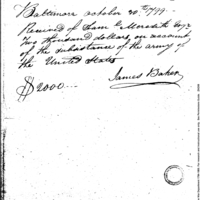 Baltimore October 20th 1799
Received of Sam Meredith Esqr
Two thousand dollars on account
of the subsistance of the army of
the United States
James Baker
$2000